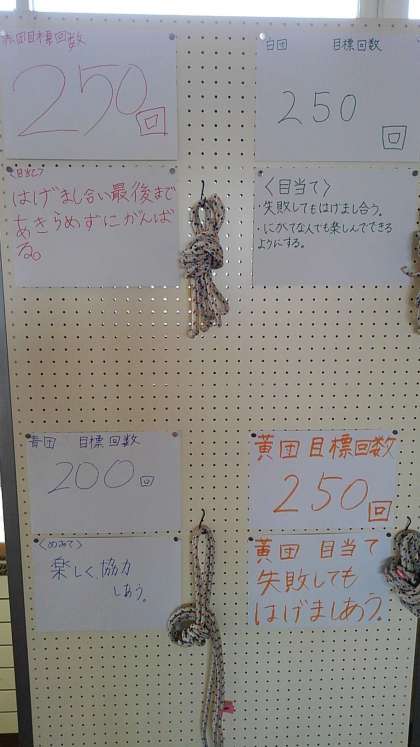 赤団目標回数
250回
〈目当て〉
はげまし合い最後まで
あきらめずにがんば
る。
白団 目標回数
250
回
〈目当て〉
・失敗してもはげまし合う。
・にがてな人でも楽しんでできる
ようにする。
青団 目標回数
200回
〈めあて〉
楽しく、協力
しあう。
黄団 目標回数
250回
黄団 目当て
失敗しても
はげましあう。